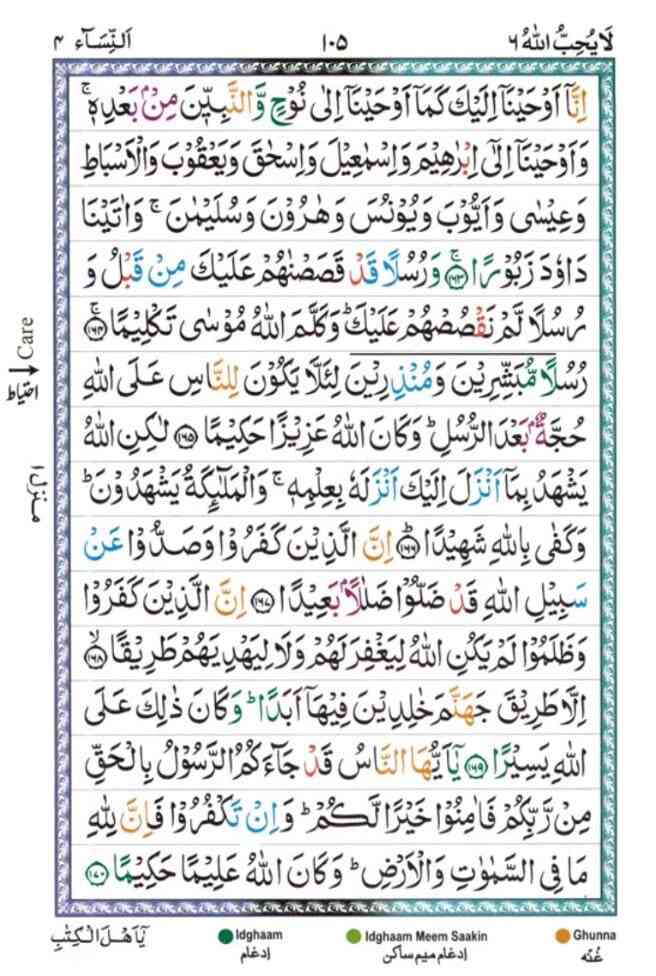 لَا يُحِبُّ اللّٰهُ ٦
١٠٥
اَلنِّسَآء ٤
اِنَّاۤ اَوْحَيْنَاۤ اِلَيْكَ كَمَاۤ اَوْحَيْنَاۤ اِلٰى نُوْحٍ وَّالنَّبِيّٖنَ مِنْۢ بَعْدِهٖ ۚ
وَاَوْحَيْنَاۤ اِلٰۤى اِبْرٰهِيْمَ وَاِسْمٰعِيْلَ وَاِسْحٰقَ وَيَعْقُوْبَ وَالْاَسْبَاطِ
وَعِيْسٰى وَاَيُّوْبَ وَيُوْنُسَ وَهٰرُوْنَ وَسُلَيْمٰنَ ۚ وَاٰتَيْنَا
دَاوٗدَ زَبُوْرًا ۚ ﴿١٦٣﴾ وَرُسُلًا قَدْ قَصَصْنٰهُمْ عَلَيْكَ مِنْ قَبْلُ وَ
رُسُلًا لَّمْ نَقْصُصْهُمْ عَلَيْكَ ؕ وَكَلَّمَ اللّٰهُ مُوْسٰى تَكْلِيْمًا ۚ ﴿١٦٤﴾
رُسُلًا مُّبَشِّرِيْنَ وَمُنْذِرِيْنَ لِئَلَّا يَكُوْنَ لِلنَّاسِ عَلَى اللّٰهِ
حُجَّةٌۢ بَعْدَ الرُّسُلِ ؕ وَكَانَ اللّٰهُ عَزِيْزًا حَكِيْمًا ﴿١٦٥﴾ لٰكِنِ اللّٰهُ
يَشْهَدُ بِمَاۤ اَنْزَلَ اِلَيْكَ اَنْزَلَهٗ بِعِلْمِهٖ ۚ وَالْمَلٰٓئِكَةُ يَشْهَدُوْنَ ؕ
وَكَفٰى بِاللّٰهِ شَهِيْدًا ؕ ﴿١٦٦﴾ اِنَّ الَّذِيْنَ كَفَرُوْا وَصَدُّوْا عَنْ
سَبِيْلِ اللّٰهِ قَدْ ضَلُّوْا ضَلٰلًاۢ بَعِيْدًا ﴿١٦٧﴾ اِنَّ الَّذِيْنَ كَفَرُوْا
وَظَلَمُوْا لَمْ يَكُنِ اللّٰهُ لِيَغْفِرَ لَهُمْ وَلَا لِيَهْدِيَهُمْ طَرِيْقًا ۙ ﴿١٦٨﴾
اِلَّا طَرِيْقَ جَهَنَّمَ خٰلِدِيْنَ فِيْهَاۤ اَبَدًا ؕ وَكَانَ ذٰلِكَ عَلَى
اللّٰهِ يَسِيْرًا ﴿١٦٩﴾ يٰۤاَيُّهَا النَّاسُ قَدْ جَآءَكُمُ الرَّسُوْلُ بِالْحَقِّ
مِنْ رَّبِّكُمْ فَاٰمِنُوْا خَيْرًا لَّكُمْ ؕ وَاِنْ تَكْفُرُوْا فَاِنَّ لِلّٰهِ
مَا فِى السَّمٰوٰتِ وَالْاَرْضِ ؕ وَكَانَ اللّٰهُ عَلِيْمًا حَكِيْمًا ﴿١٧٠﴾
Care
احتیاط
منزل ١
يٰۤاَهْلَ الْكِتٰبِ
Idghaam
إدغام
Idghaam Meem Saakin
إدغام ميم ساكن
Ghunna
غُنّه